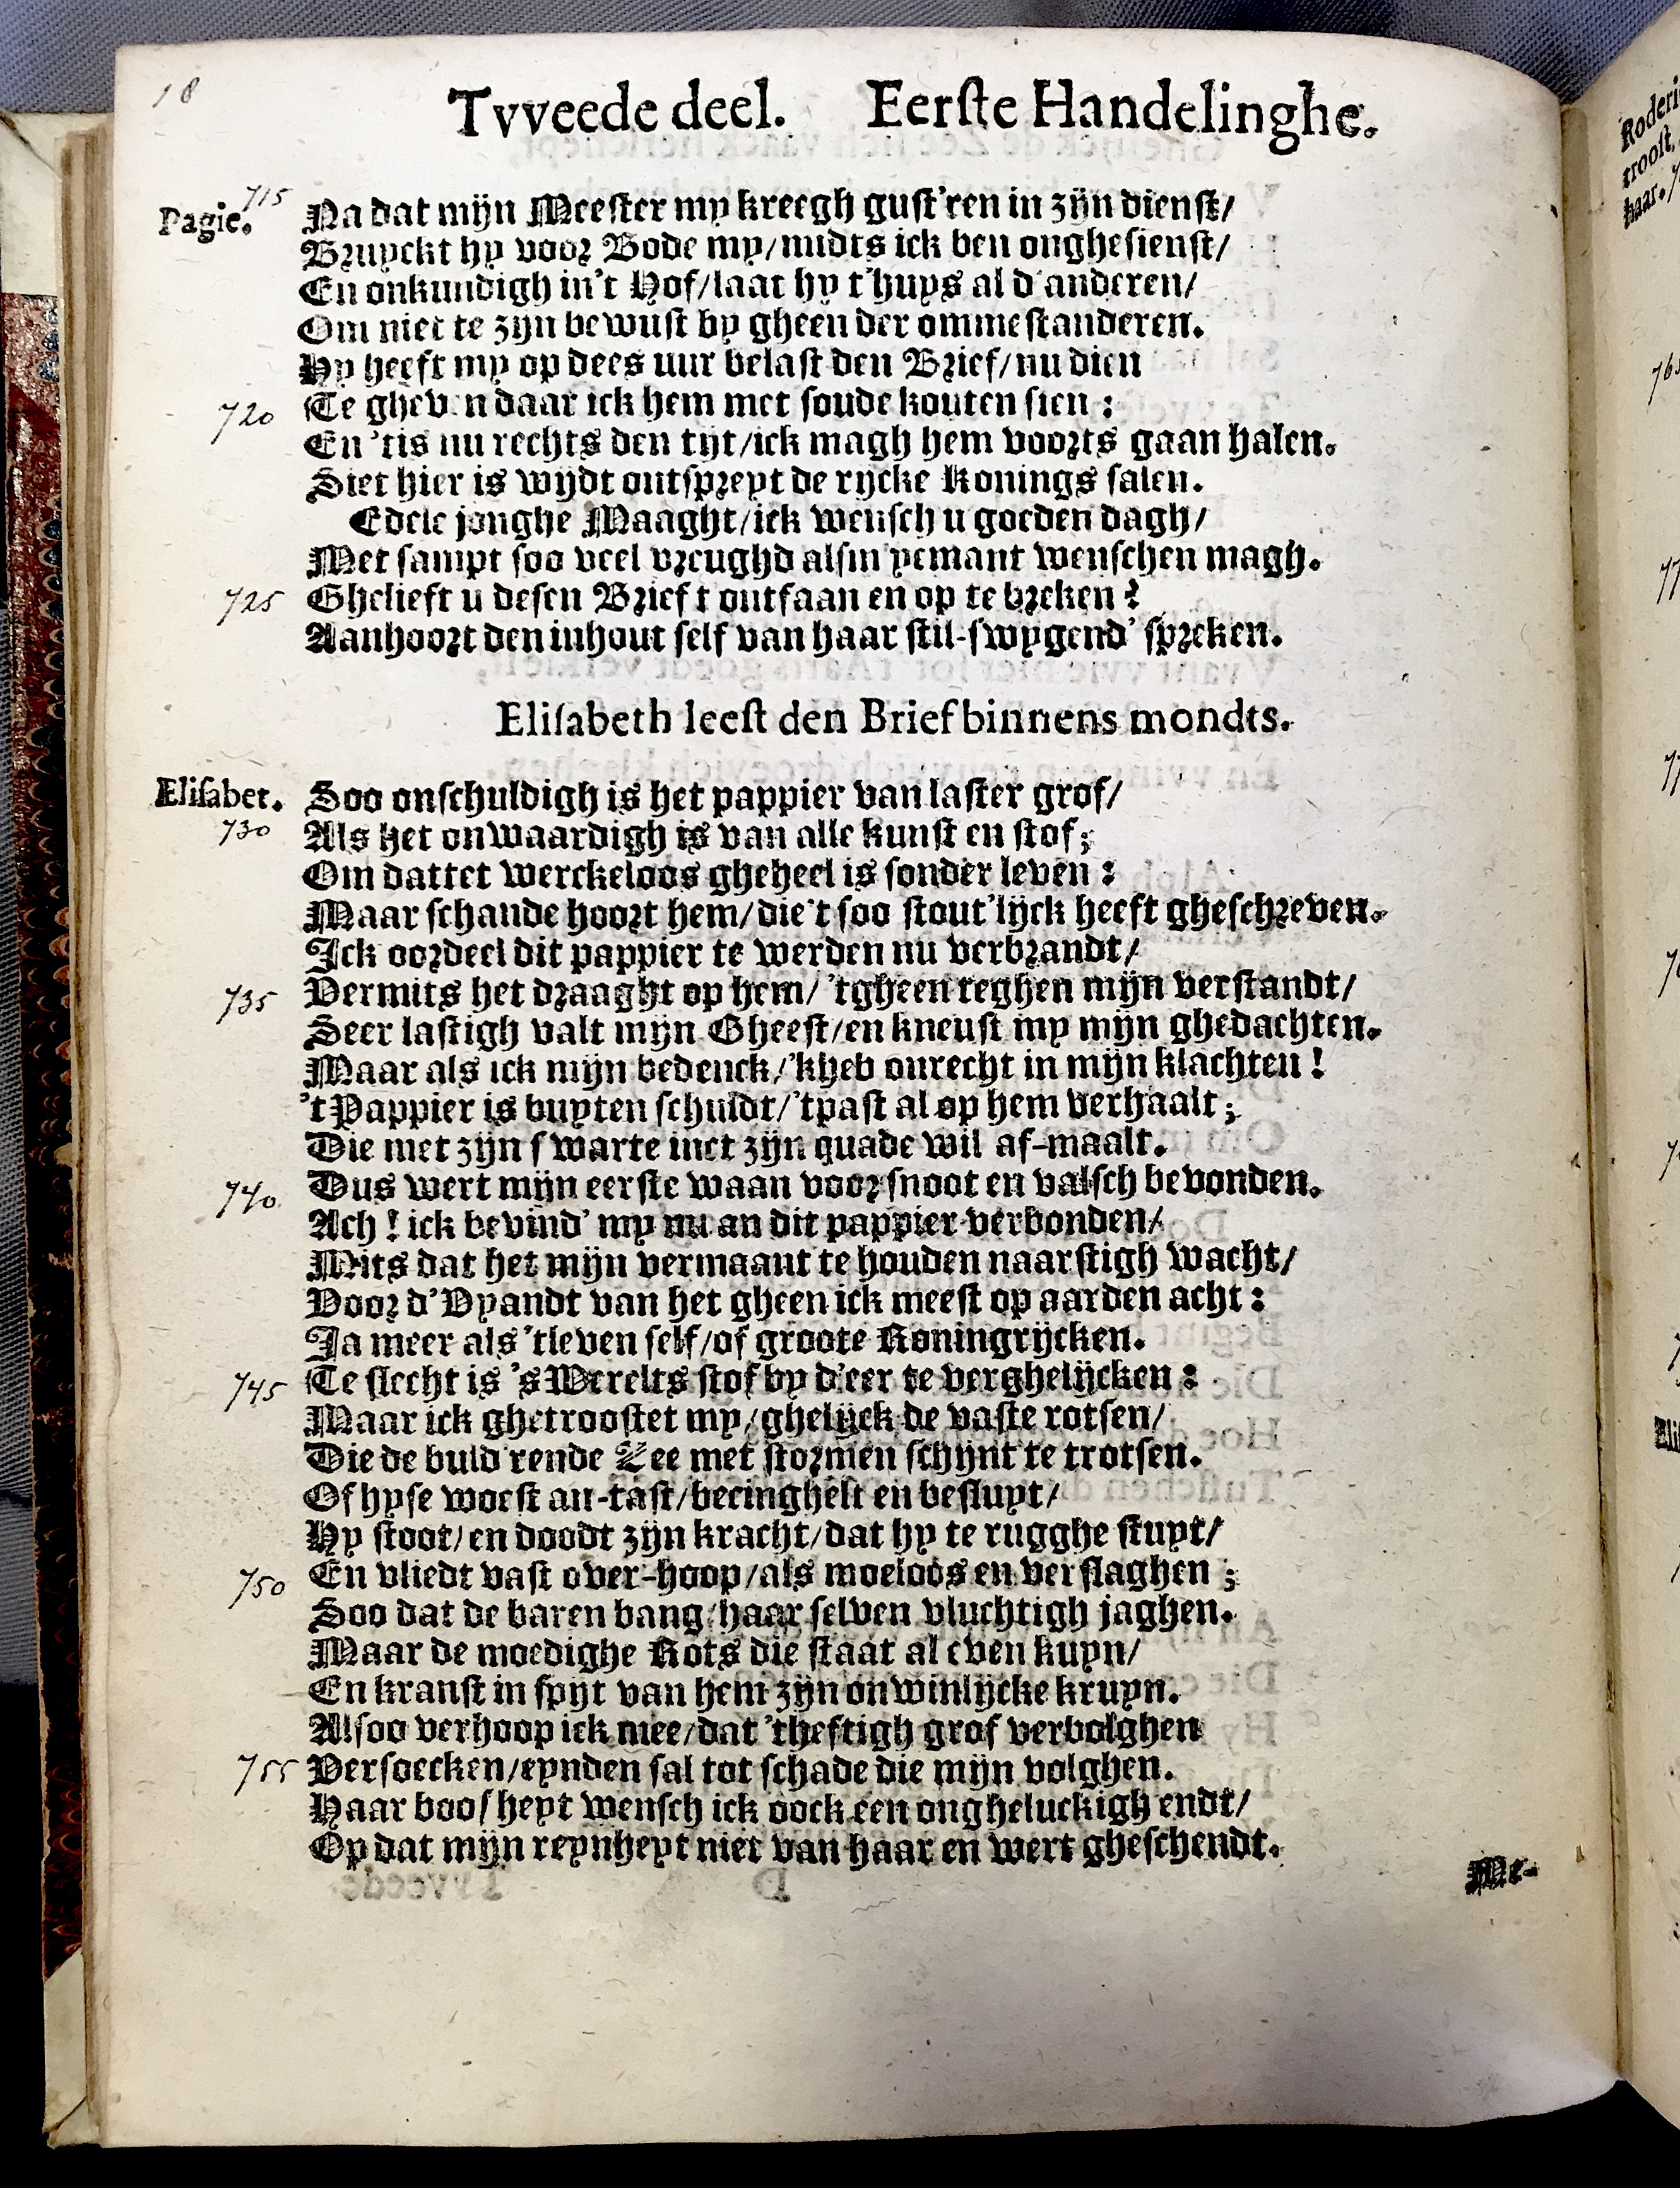 18
Tvveede deel. Eerſte Handelinghe.
715
Pagie. Na dat mijn Meeſter my kreegh guſt'ren in zijn dienſt/
Bruyckt hy voor Bode my/ midts ick ben ongheſienſt/
En onkundigh in't Hof/ laat hy t'huys al d'anderen/
Om niet te zijn bewuſt by gheen der ommeſtanderen.
Hy heeft my op dees uur belaſt den Brief/ nu dien
720 Te gheven daar ick hem met ſoude kouten ſien:
En 'tis nu rechts den tijt/ ick magh hem voorts gaan halen.
Siet hier is wijdt ontſpreyt de rijcke Konings ſalen.
Edele jonghe Maaght/ ick wenſch u goeden dagh/
Met ſampt ſoo veel vreughd alſm' yemant wenſchen magh.
725 Ghelieft u deſen Brief t'ontfaan en op te breken?
Aanhoort den inhout ſelf van haar ſtil-ſwygend' ſpreken.
Eliſabeth leeſt den Brief binnens mondts.
Eliſabet. Soo onſchuldigh is het pappier van laſter grof/
730 Als het onwaardigh is van alle kunſt en ſtof;
Om dattet werckeloos gheheel is ſonder leven:
Maar ſchande hoort hem/ die't ſoo ſtout'lijck heeft gheſchreven.
Ick oordeel dit pappier te werden nu verbrandt/
735 Vermits het draaght op hem/ 'tgheen teghen mijn verſtandt/
Seer laſtigh valt mijn Gheeſt/ en kneuſt my mijn ghedachten.
Maar als ick mijn bedenck/ 'kheb onrecht in mijn klachten!
't Pappier is buyten ſchuldt/ 'tpaſt al op hem verhaalt;
Die met zijn ſwarte inct zijn quade wil af-maalt.
740 Dus wert mijn eerſte waan voor ſnoot en valſch bevonden.
Ach! ick bevind' my nu an dit pappier verbonden/
Mits dat het mijn vermaant te houden naarſtigh wacht/
Voor d'Vyandt van het gheen ick meeſt op aarden acht:
Ja meer als 'tleven ſelf/ of groote Koningrijcken.
745 Te ſlecht is 's Werelts ſtof by d'eer te verghelijcken:
Maar ick ghetrooſtet my/ ghelijck de vaſte rotſen/
Die de buld'rende Zee met ſtormen ſchijnt te trotſen.
Of hyſe woeſt an-taſt/ becinghelt en beſluyt/
Hy ſtoot/ en doodt zijn kracht/ dat hy te rugghe ſtuyt/
750 En vliedt vaſt over-hoop/ als moeloos en verſlaghen;
Soo dat de baren bang/ haar ſelven vluchtigh jaghen.
Maar de moedighe Rots die ſtaat al even kuyn/
En kranſt in ſpijt van hem zijn onwinlijcke kruyn.
Alſoo verhoop ick mee/ dat 'theftigh grof vervolghen
755 Verſoecken/ eynden ſal tot ſchade die mijn volghen.
Haar booſheyt wenſch ick oock een ongheluckigh endt/
Op dat mijn reynheyt niet van haar en wert gheſchendt.
Me-